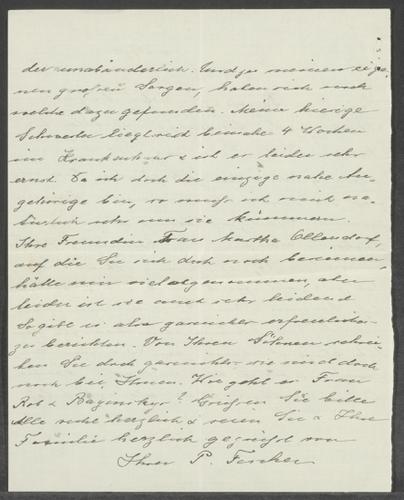 der unabänderlich. Und zu meinen eige-
nen großen Sorgen, haben sich noch
welche dazu gefunden. Meine hiesige
Schwester liegt seit beinahe 4 Wochen
im Krankenhaus & ist es leider sehr
ernst. Da ich doch die einzige nahe An-
gehörige bin, so muß ich mich na-
türlich sehr um sie kümmern.
Ihre Freundin Frau Martha Ollendorf,
auf die Sie sich doch noch besinnen,
hätte mir viel abgenommen, aber
leider ist sie auch sehr leidend
So gibt es also garnichts erfreuliches
zu berichten. Von Ihren Söhnen schrei-
ben Sie doch garnichts, sie sind doch
noch bei Ihnen. Wie geht es Frau
Rob & Baginsky? Grüßen Sie bitte
Alle recht herzlich & seien Sie & Ihre
Familie herzlich gegrüßt von
Ihrer P. Fischer